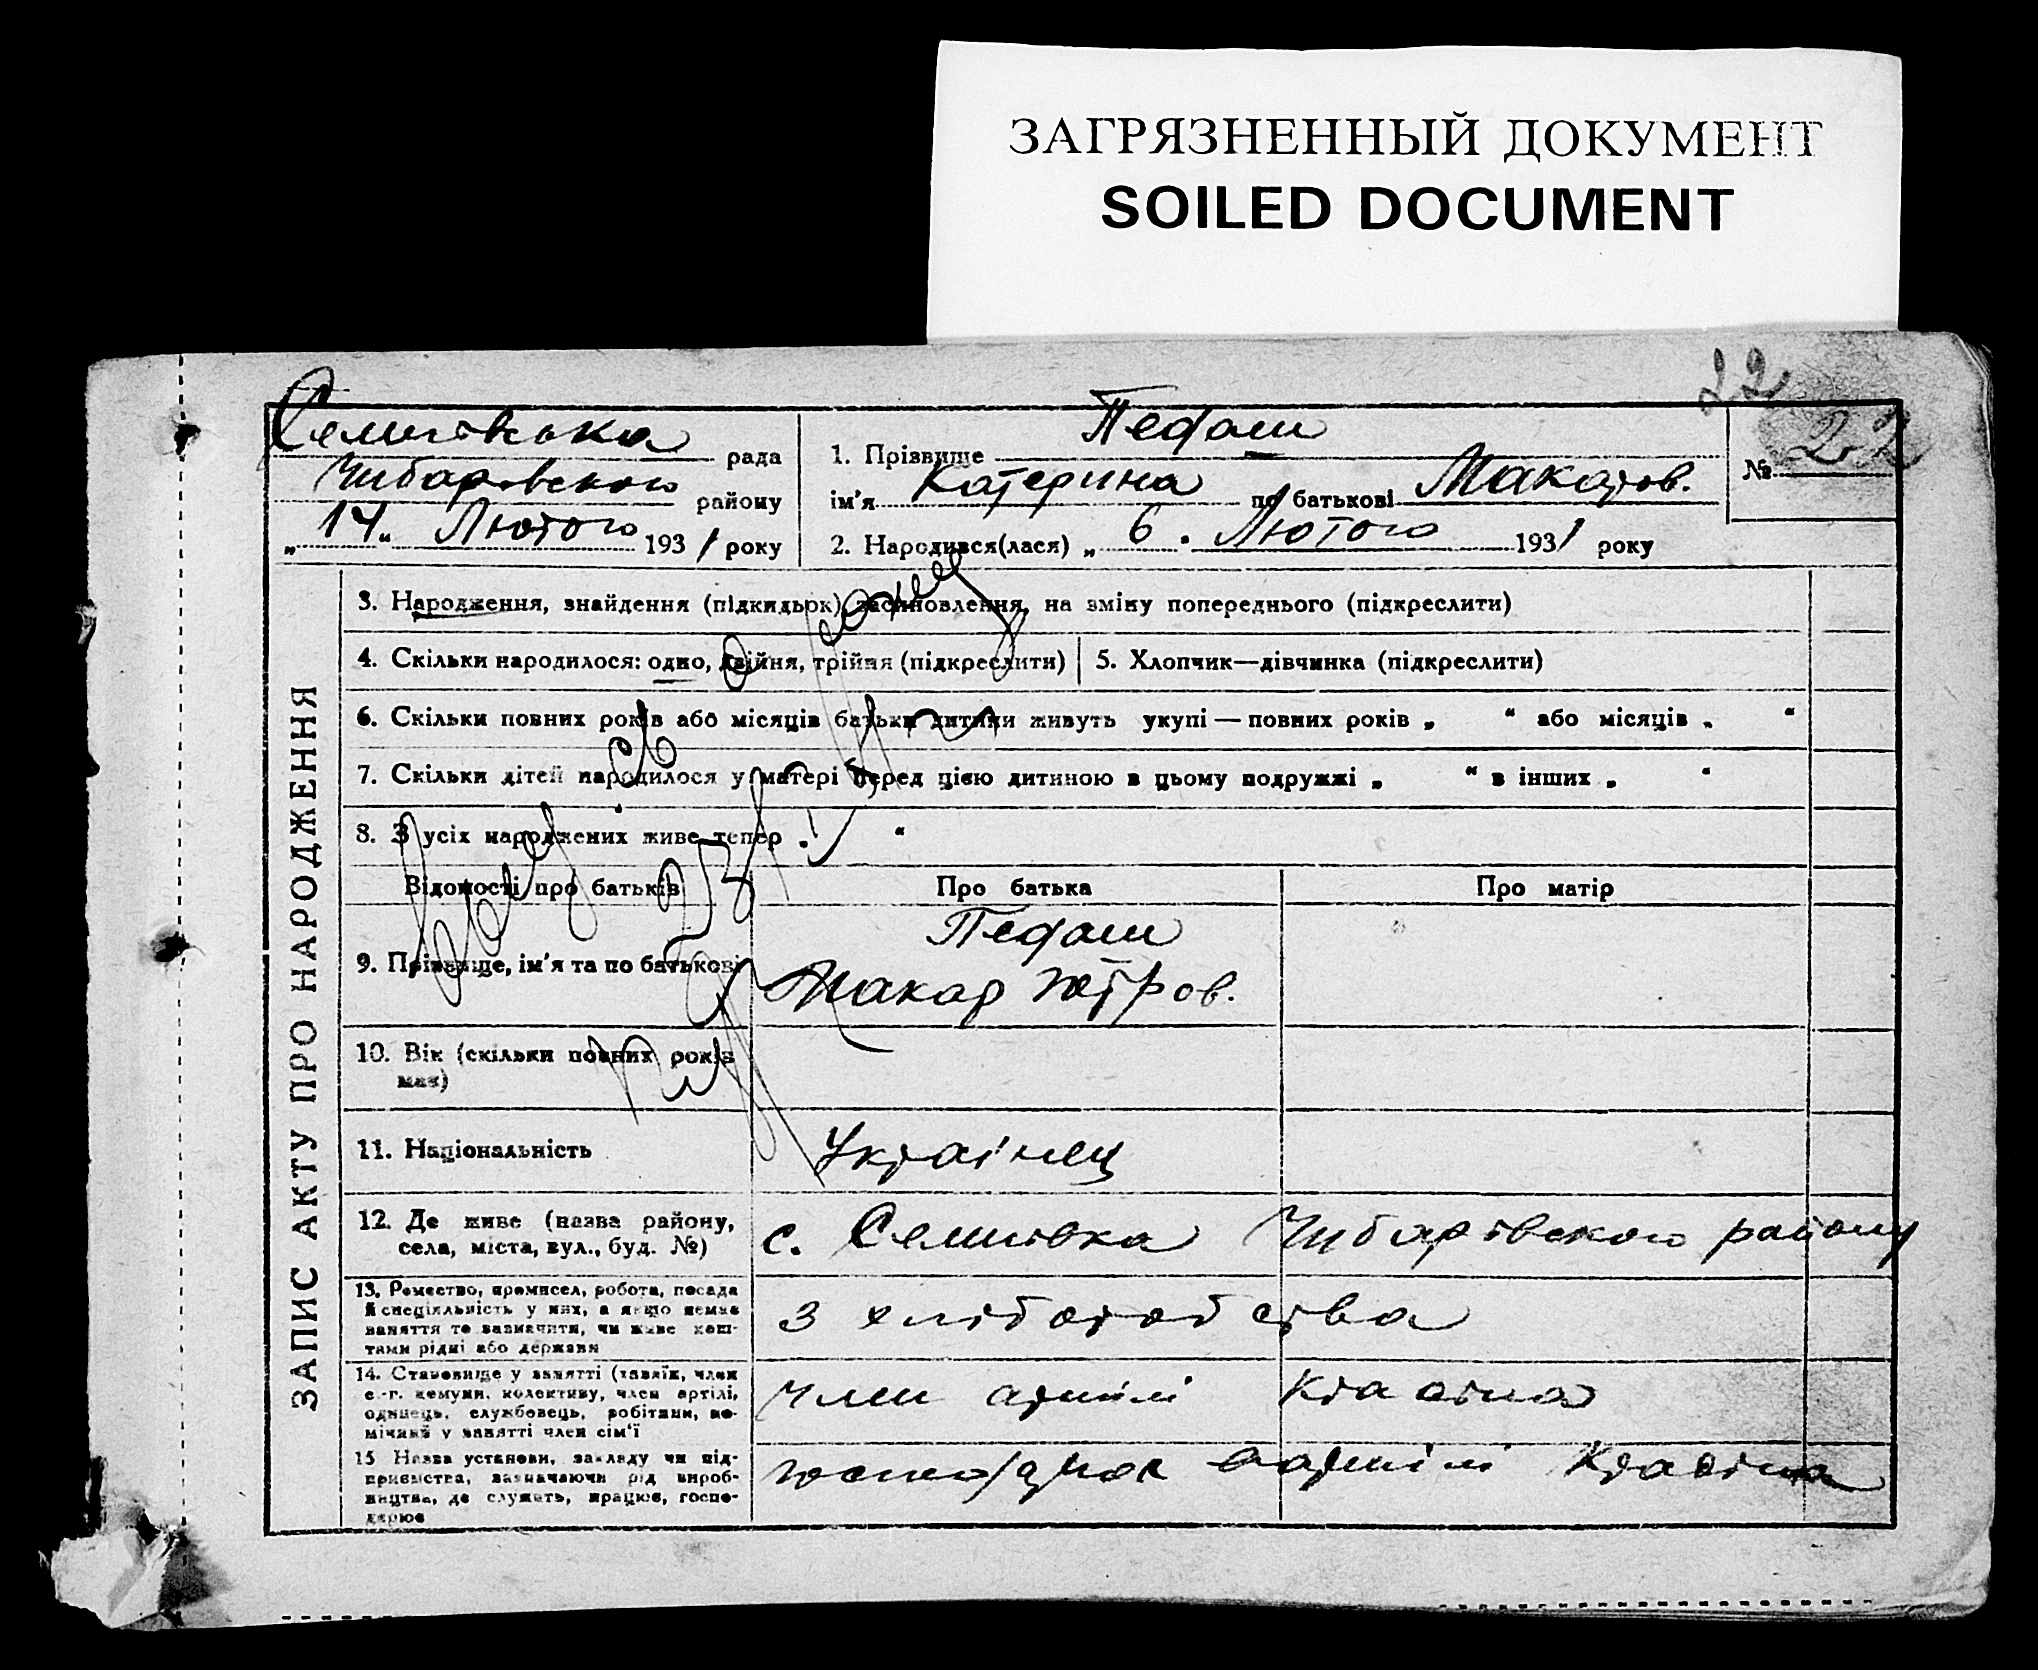 ЗАГРЯЗНЕННЫЙ ДОКУМЕНТ
SOILED DOCUMENT
22
Семенівська рада
Чубарівського району
„14“ Лютого 1931 року
1. Прізвище Педаш
ім'я Катерина по батькові Макаров.
2. Народився(лася) „6. Лютого 1931 року
№ 22
ЗАПИС АКТУ ПРО НАРОДЖЕННЯ
3. Народження, знайдення (підкидьок), засиновлення, на зміну попереднього (підкреслити)
4. Скільки народилося: одно, двійня, трійня (підкреслити)
5. Хлопчик—дівчинка (підкреслити)
6. Скільки повних років або місяців батьки дитини живуть укупі — повних років „ “ або місяців „ “
7. Скільки дітей народилося у матері перед цією дитиною в цьому подружжі „ “ в інших „ “
8. З усіх народжених живе тепер „ “
Відомості про батьків
Про батька
Про матір
9. Прізвище, ім'я та по батькові
Педаш
Макар Петров.
10. Вік (скільки повних років
має)
11. Національність
Українец
12. Де живе (назва району,
села, міста, вул., буд. №)
с. Семенівка Чубарівского району
13. Ремество, промисел, робота, посада
й специяльність у них, а якщо немає
заняття то зазначити, чи живе кош-
тами рідні або держави
З хліборобства
14. Становище у занятті (хазяїн, член
с.-г. комуни, колективу, член артілі,
одинець, службовець, робітник, по-
мічний у занятті член сім'ї
член артілі
15 Назва установи, закладу чи під-
приємства, зазначаючи рід вироб-
ництва, де служить, працює, госпо-
дарює